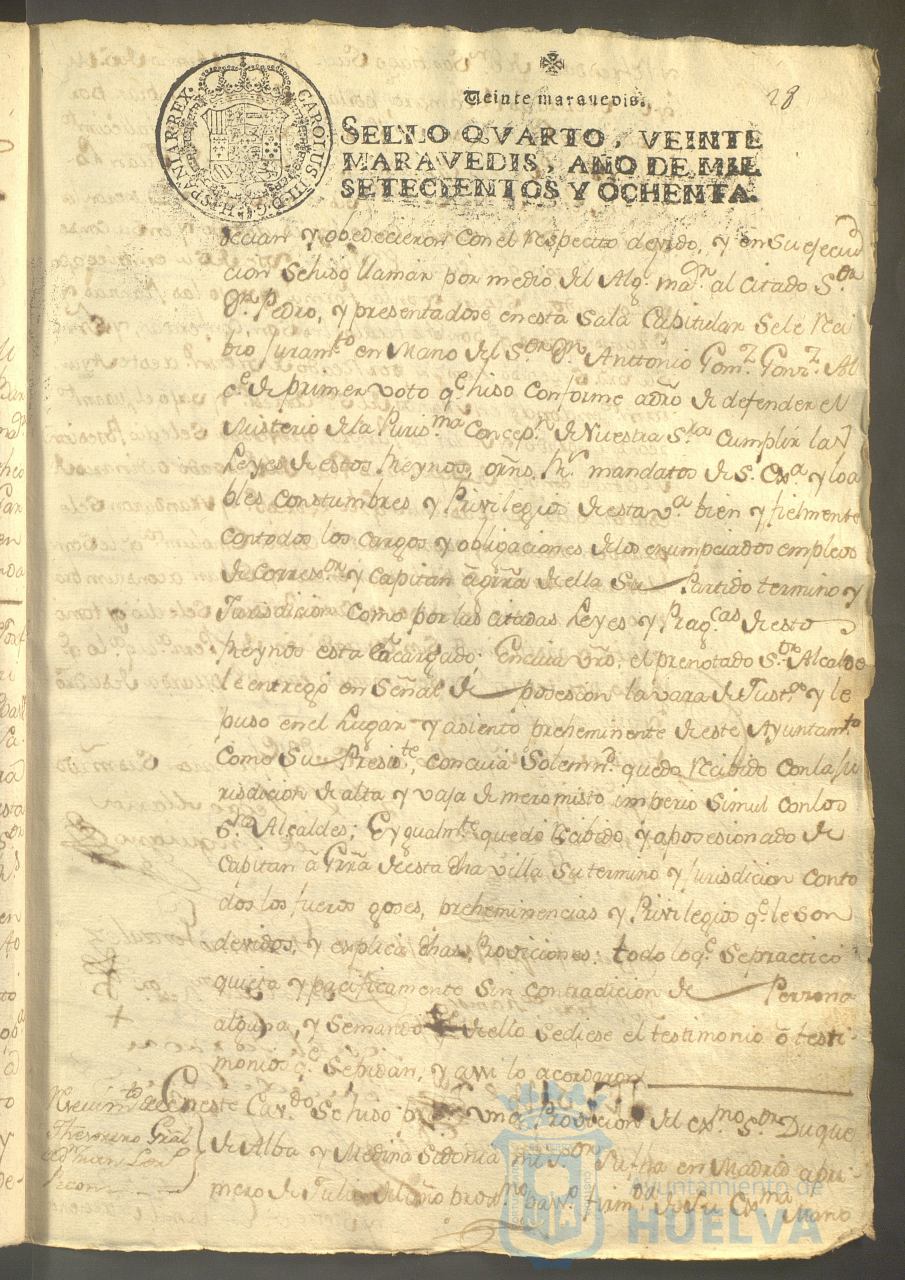 28
Veinte maravedis.
SELLO QVARTO, VEINTE
MARAVEDIS, AÑO DE MIL
SETECIENTOS Y OCHENTA.
CAROLUS III D.G. HISPANIAR. REX.
decian y obedecieron con el respecto devido, y en su ejecu
cion se hiso llamar por medio del Alg.l ma.or al citado S.or
D.n Pedro, y presentadose en esta Sala Capitular se le reci
bio Juram.to en Mano del S.or D.n Anttonio Gom.z Gonz.z Al
c.e de primer voto q.e hiso conforme a dro de defender el
Misterio de la Puris.ma Concep.n de Nuestra S.ra Cumplir las
Leyes de estos Reynos, orns, mandatos de S. Ex.a y loa
bles constumbres y Privilegios de esta v.a bien y fielmente
con todos los cargos y obligaciones de los enumpciados empleos
de Corre.or y Capitan a grra de ella su Partido termino y
Jurisdicion como por las citadas Leyes y Prag.cas de esto
Reynos esta encargado; en cuia vrd, el prenotado S.or Alcalde
le entregó en Señal de posesion la vara de Just.a y le
puso en el Lugar y asiento preheminente de este Ayuntam.to
como su Presid.te, con cuia Solemn.d quedo recibido con la Ju
risdicion de alta y vaja de mero misto imperio simul con los
S.res Alcaldes; E ygualm.te quedo recibido y aposesionado de
Capitan a Grra de esta dha villa su termino y Jurisdicion conto
dos los fueros goses, preheminencias y Privilegios q.e le son
devidos, y explica dhas Proviciones: todo lo q.e se practico
quieta y pacificamente sin contradicion de Perzona
alguna, y se mandó de ello se diese el testimonio o testi
monios q.e se pidan, y assi lo acordaron
Recivim.to de
Thesorero Gral
En este Cav.do se hiso una Provicion del Ex.mo S.or Duque
de Alba y Medina Sidonia mi S.or su fha en Madrid a pri
mero de Julio del año prox.mo firm.da de su Ex.ma Mano
Ayuntamiento de
HUELVA